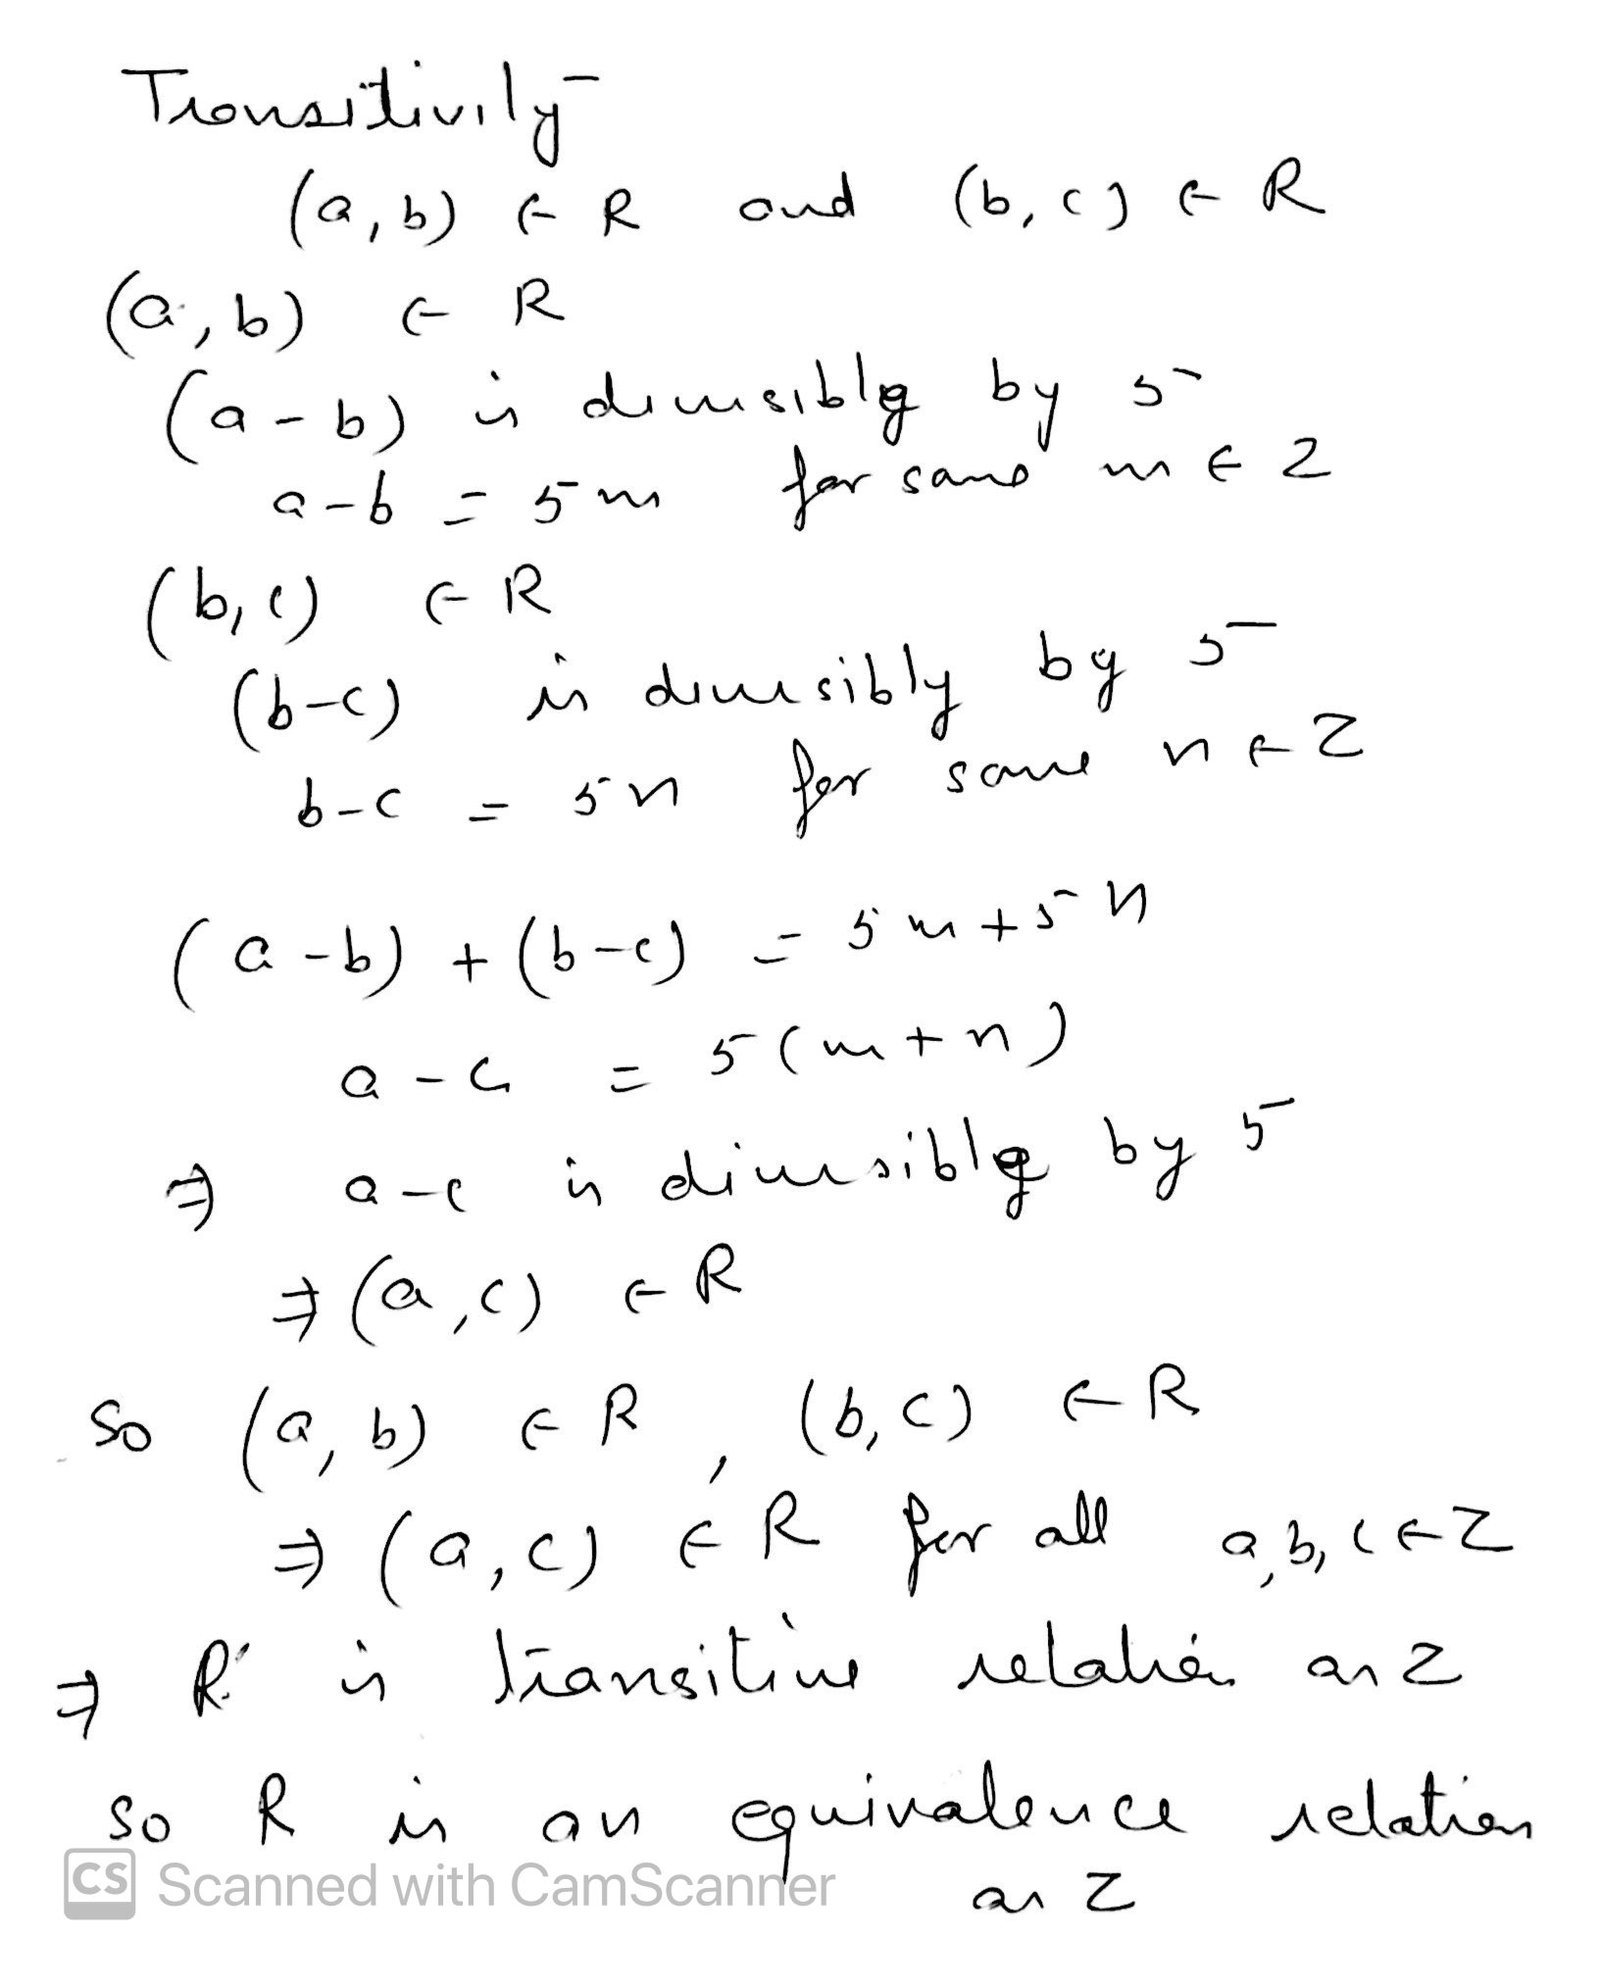 Transitivity
(a, b) ∈ R and (b, c) ∈ R
(a, b) ∈ R
(a - b) is divisibly by 5
a - b = 5m for some m ∈ Z
(b, c) ∈ R
(b - c) is divisibly by 5
b - c = 5n for some n ∈ Z
(a - b) + (b - c) = 5m + 5n
a - c = 5(m + n)
⇒ a - c is divisibly by 5
⇒ (a, c) ∈ R
So (a, b) ∈ R, (b, c) ∈ R
⇒ (a, c) ∈ R for all a, b, c ∈ Z
⇒ R is transitive relation on Z
So R is an equivalence relation
on Z
CS Scanned with CamScanner